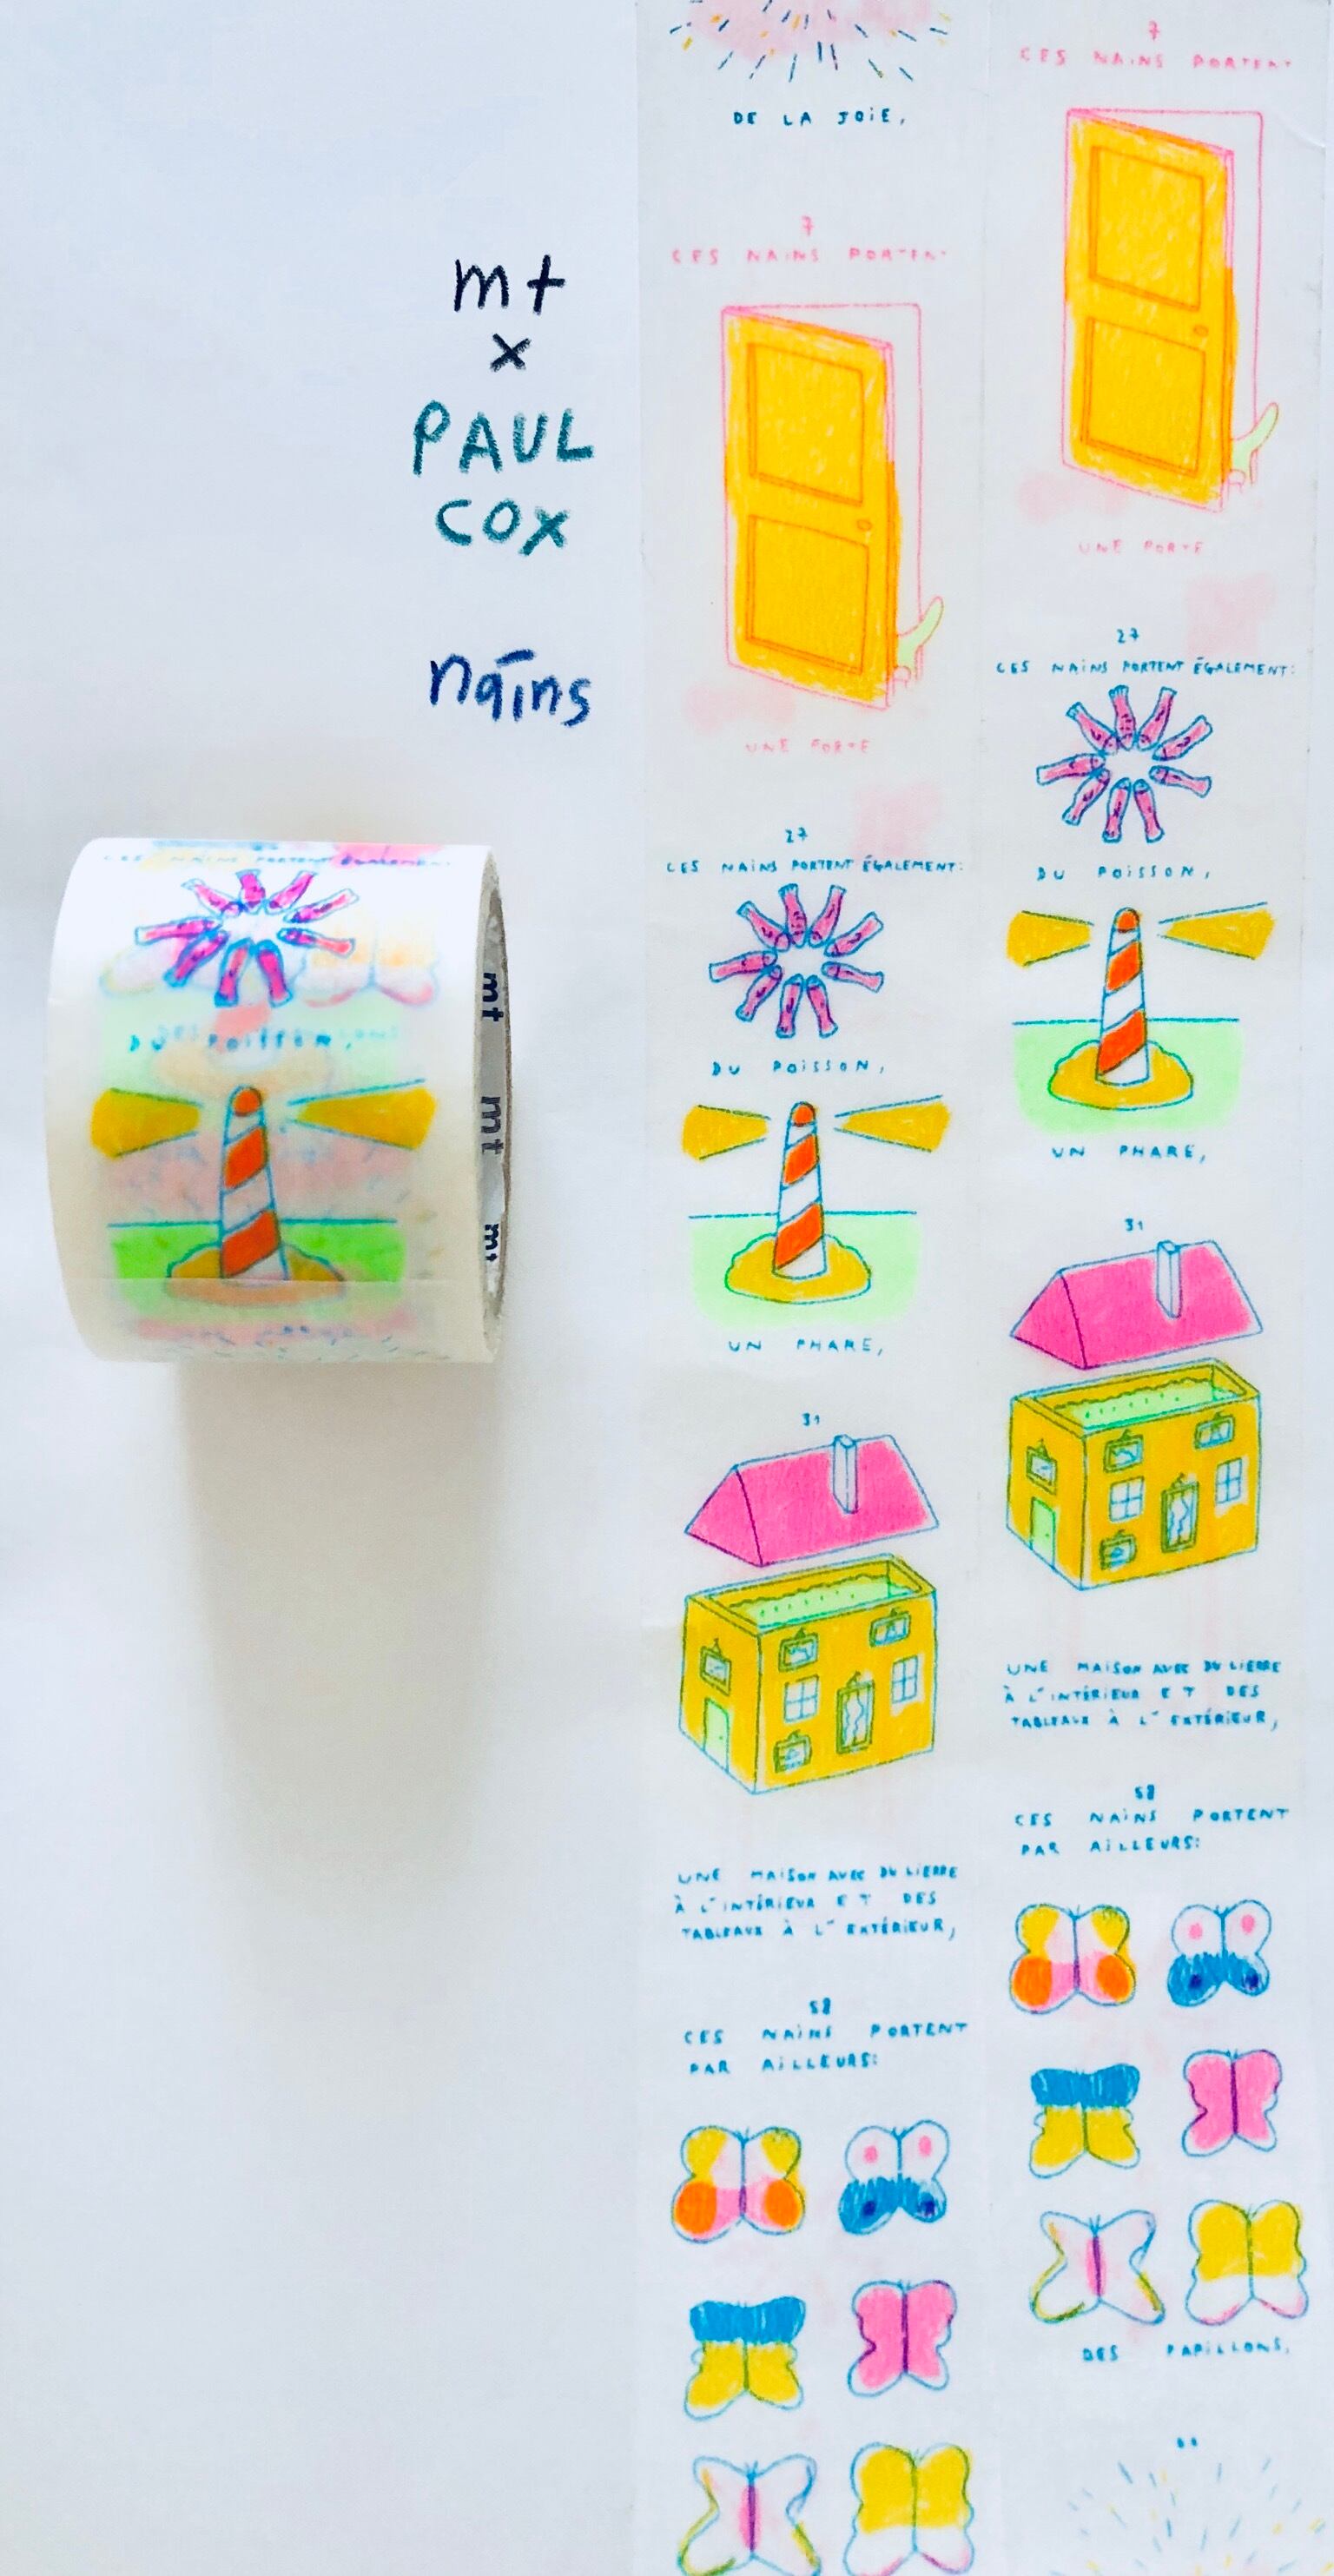 mt
x
PAUL
COX
nains
CES NAINS PORTENT ÉGALEMENT
DU POISSON,
mt
mt
mt
DE LA JOIE,
7
CES NAINS PORTENT
UNE PORTE
27
CES NAINS PORTENT ÉGALEMENT:
DU POISSON,
UN PHARE,
31
UNE MAISON AVEC DU LIERRE
À L'INTÉRIEUR ET DES
TABLEAUX À L'EXTÉRIEUR,
58
CES NAINS PORTENT
PAR AILLEURS:
7
CES NAINS PORTENT
UNE PORTE
27
CES NAINS PORTENT ÉGALEMENT:
DU POISSON,
UN PHARE,
31
UNE MAISON AVEC DU LIERRE
À L'INTÉRIEUR ET DES
TABLEAUX À L'EXTÉRIEUR,
58
CES NAINS PORTENT
PAR AILLEURS:
DES PAPILLONS,